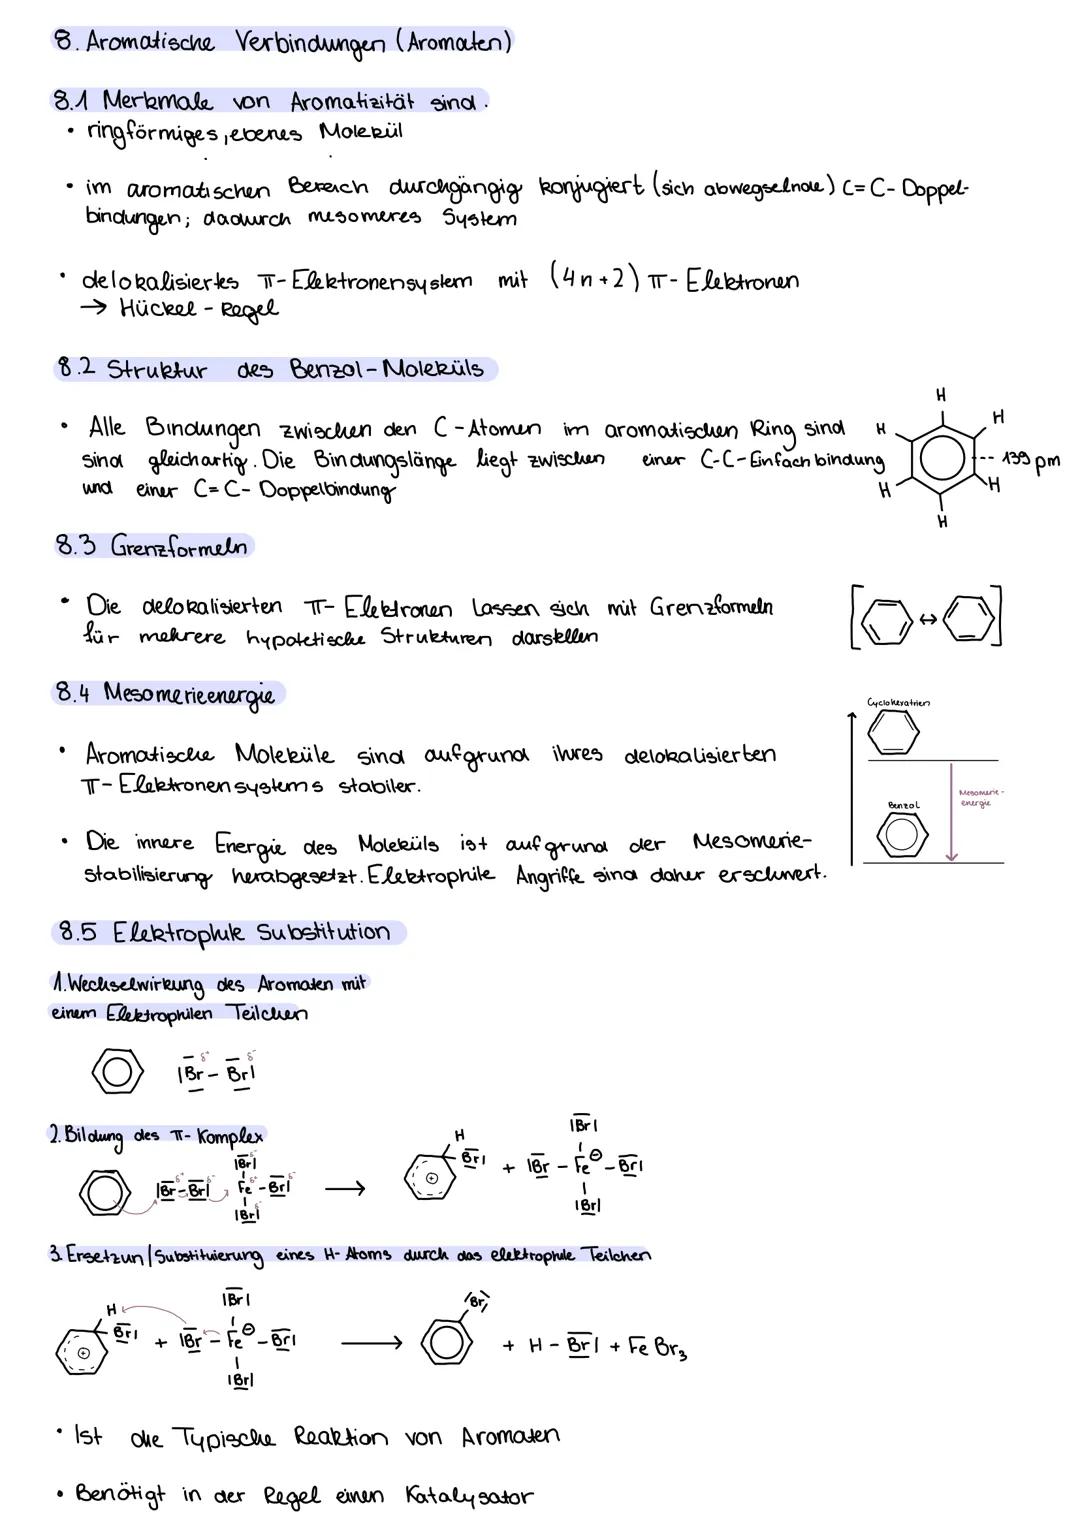 8. Aromatische Verbindungen (Aromaten)
8.1 Merkmale von Aromatizität sind.
• ringförmiges, ebenes Molekül
• im aromatischen Bereich durchgängig konjugiert (sich abwegselnde) C=C-Doppel-
bindungen; dadurch mesomeres System
• delokalisiertes π-Elektronensystem mit (4n+2) π-Elektronen
→ Hückel-Regel
8.2 Struktur des Benzol-Moleküls
• Alle Bindungen zwischen den C-Atomen im aromatischen Ring sind
sind gleichartig. Die Bindungslänge liegt zwischen einer C-C-Einfachbindung
und einer C=C-Doppelbindung
H
H H
139 pm
H H
H
8.3 Grenzformeln
• Die delokalisierten π-Elektronen lassen sich mit Grenzformeln
für mehrere hypotetische Strukturen darstellen
8.4 Mesomerieenergie
Cyclohexatrien
• Aromatische Moleküle sind aufgrund ihres delokalisierten
π-Elektronensystems stabiler.
Mesomerie-
energie
Benzol
• Die innere Energie des Moleküls ist aufgrund der Mesomerie-
stabilisierung herabgesetzt. Elektrophile Angriffe sind daher erschwert.
8.5 Elektrophile Substitution
1. Wechselwirkung des Aromaten mit
einem Elektrophilen Teilchen
δ+ δ-
|Br - Br|
2. Bildung des π-Komplex
|Br| δ-
δ+ δ- δ+ δ-
|Br-Br| Fe-Br| → H Br| ⊕ + |Br - Fe⊖ - Br|
|Br| δ-
|Br|
|Br|
3. Ersetzun/Substituierung eines H-Atoms durch das elektrophile Teilchen
|Br| |Br|
H Br| ⊕ + |Br - Fe⊖ - Br| → + H - Br| + FeBr₃
|Br|
• Ist die Typische Reaktion von Aromaten
• Benötigt in der Regel einen Katalysator